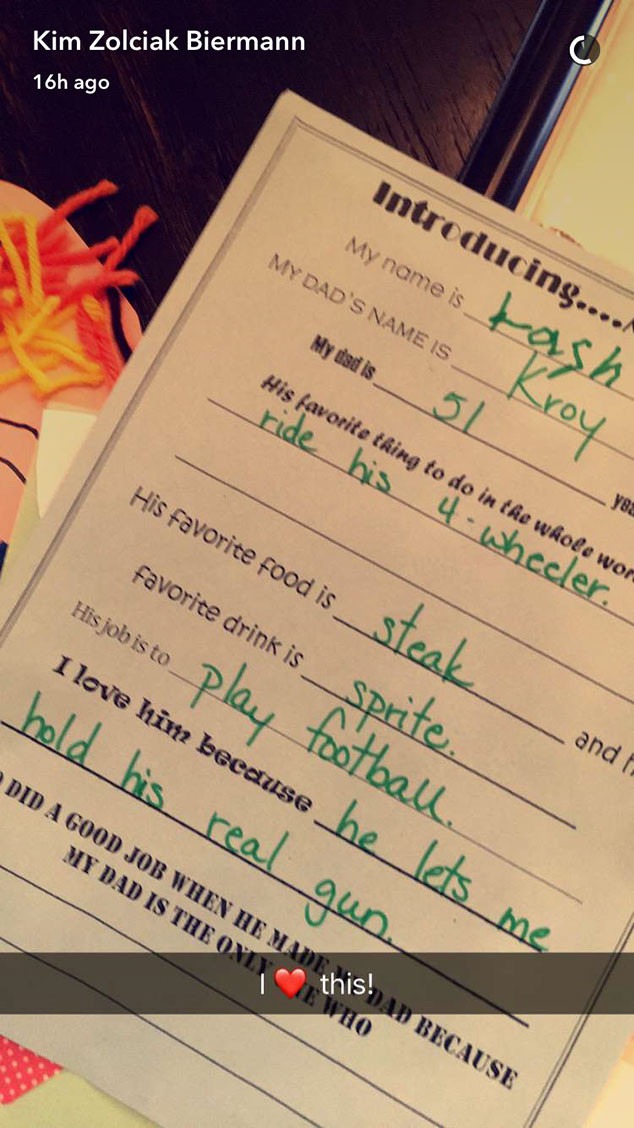 Kim Zolciak Biermann
16h ago
Introducing.....
My name is Kash
MY DAD'S NAME IS Kroy
My dad is 51
His favorite thing to do in the whole
ride his 4-wheeler.
His favorite food is steak and
favorite drink is sprite.
His job is to play football.
I love him because he lets me
hold his real gun.
DID A GOOD JOB WHEN HE MADE DAD BECAUSE
MY DAD IS THE ONLY WHO
I ❤️ this!